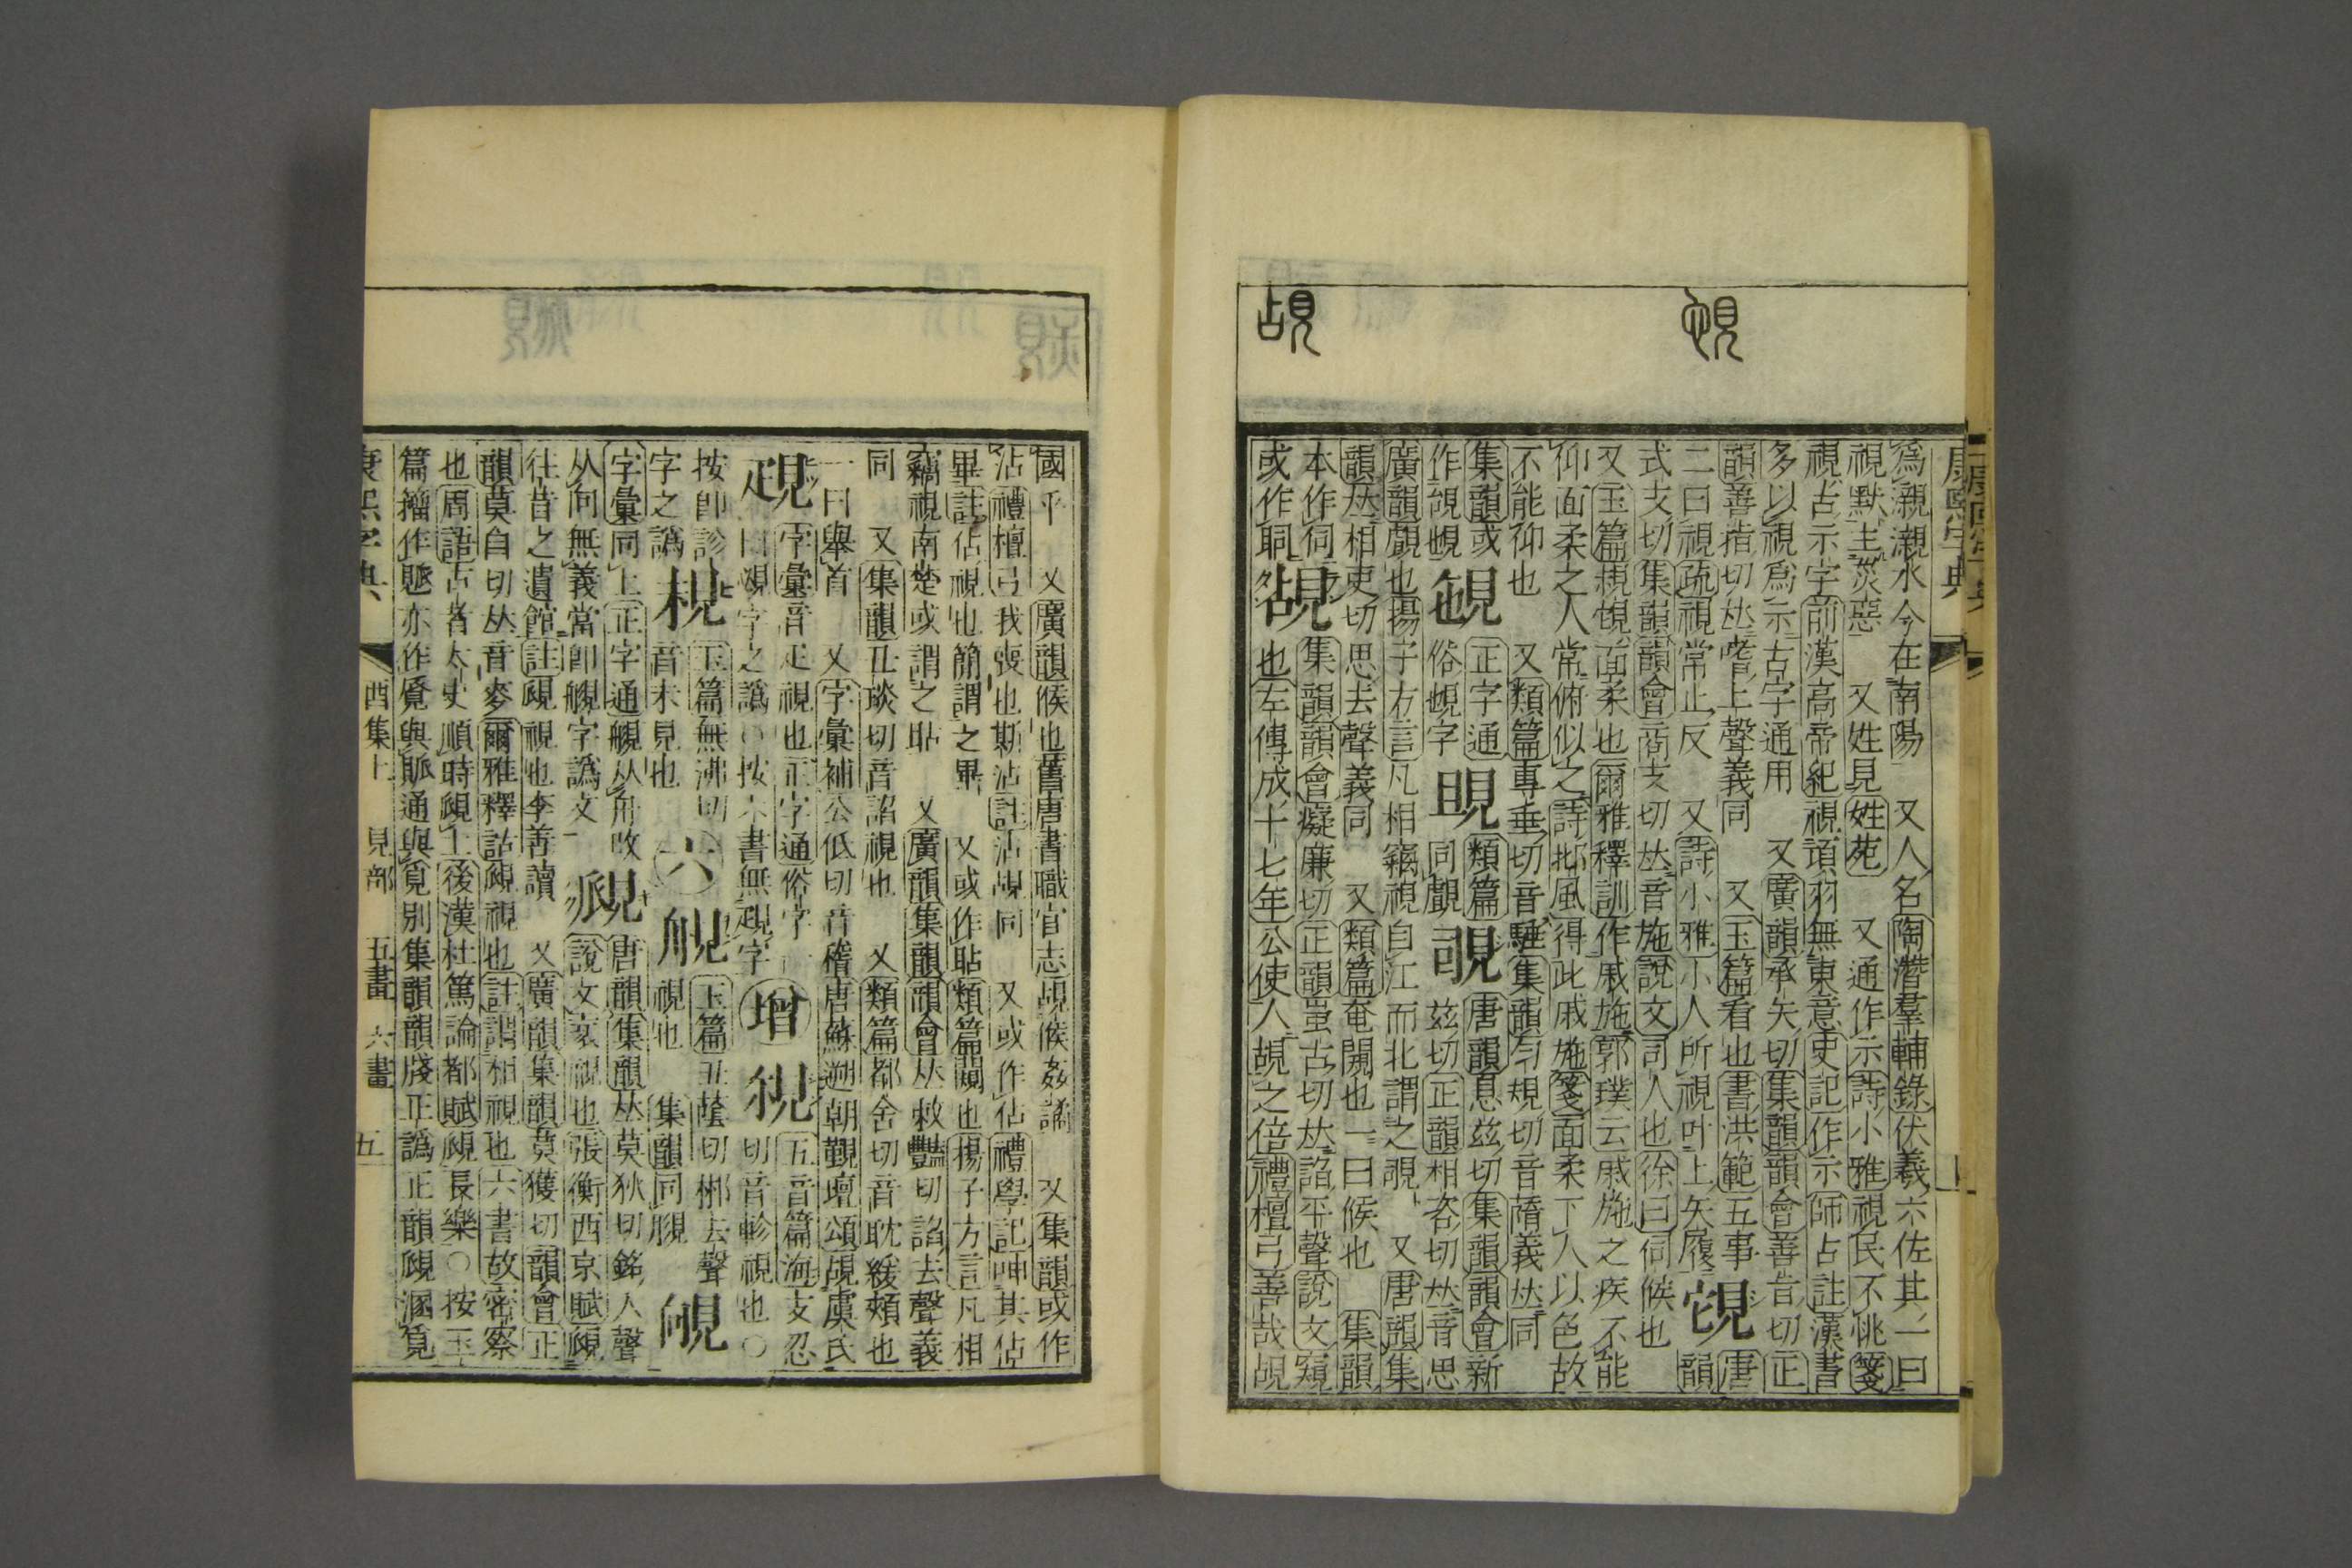 覘
康熙字典
爲瀙瀙水今在南陽 又人名陶潛羣輔錄伏羲六佐其一曰
視默主災惡 又姓見姓苑 又通作示詩小雅視民不恌箋
視古示字前漢高帝紀視項羽無東意史記作示師古註漢書
多以視爲示古字通用 又廣韻承矢切集韻韻會善旨切正
韻善指切𠀤嗜上聲義同 又玉篇看也書洪範五事 唐
二曰視疏視常止反 又詩小雅小人所視叶上矢履 覘 韻
式支切集韻韻會商支切𠀤音施說文司人也徐曰伺候也
又玉篇規覘面柔也爾雅釋訓作戚施郭璞云戚施之疾不能
仰面柔之人常俯似之詩邶風得此戚施箋面柔下人以色故
不能仰也 又類篇專垂切音騅集韻勻規切音隋義𠀤同
集韻或 正字通 類篇 唐韻息玆切集韻韻會新
作覘 俗字 同覰 覗 玆切正韻相咨切𠀤音思
廣韻覰也揚子方言凡相竊視自江而北謂之覗 又唐韻集
韻𠀤相吏切思去聲義同 又類篇奄閱也一曰候也 集韻
本作伺 集韻韻會癡廉切正韻蚩占切𠀤諂平聲說文窺
或作䏤 覘 也左傳成十七年公使人覘之信禮檀弓善哉覘
國乎 又廣韻候也舊唐書職官志覘候姦譎 又集韻或作
沾禮檀弓我喪也斯沾註沾覘同 又或作佔禮學記呻其佔
畢註佔視也簡謂之畢 又或作貼類篇闚也揚子方言凡相
竊視南楚或謂之貼 又廣韻集韻韻會𠀤敕豔切諂去聲義
同 又集韻丑琰切音諂視也 又類篇都含切音耽緩頰也
一曰舉首 又字彙補公低切音稽唐蘇遡朝覲壇頌覘虞氏
字彙音疋視也正字通俗字 增 五音篇海支忍
曰覕字之譌○按本書無字 切音軫視也○
按卽診 玉篇無沸切 六 玉篇丑蔭切郴去聲
字之譌 音未見也 視也 集韻同 覛
字彙同上正字通覛从舟攺 唐韻集韻𠀤莫狄切銘入聲
从向無義當卽覛字譌文 覛 說文衺視也張衡西京賦覛
往昔之遺館註覛視也李善讀 又廣韻集韻莫獲切韻會正
韻莫白切𠀤音麥爾雅釋詁覛視也註謂相視也六書故密察
也周語古者太史順時覛土後漢杜篤論都賦覛長樂○按玉
篇籀作䁇亦作覓與脈通與覓別集韻韻牋正譌正韻覛溷覓
康熙字典 酉集上 見部 五畫 六畫 五